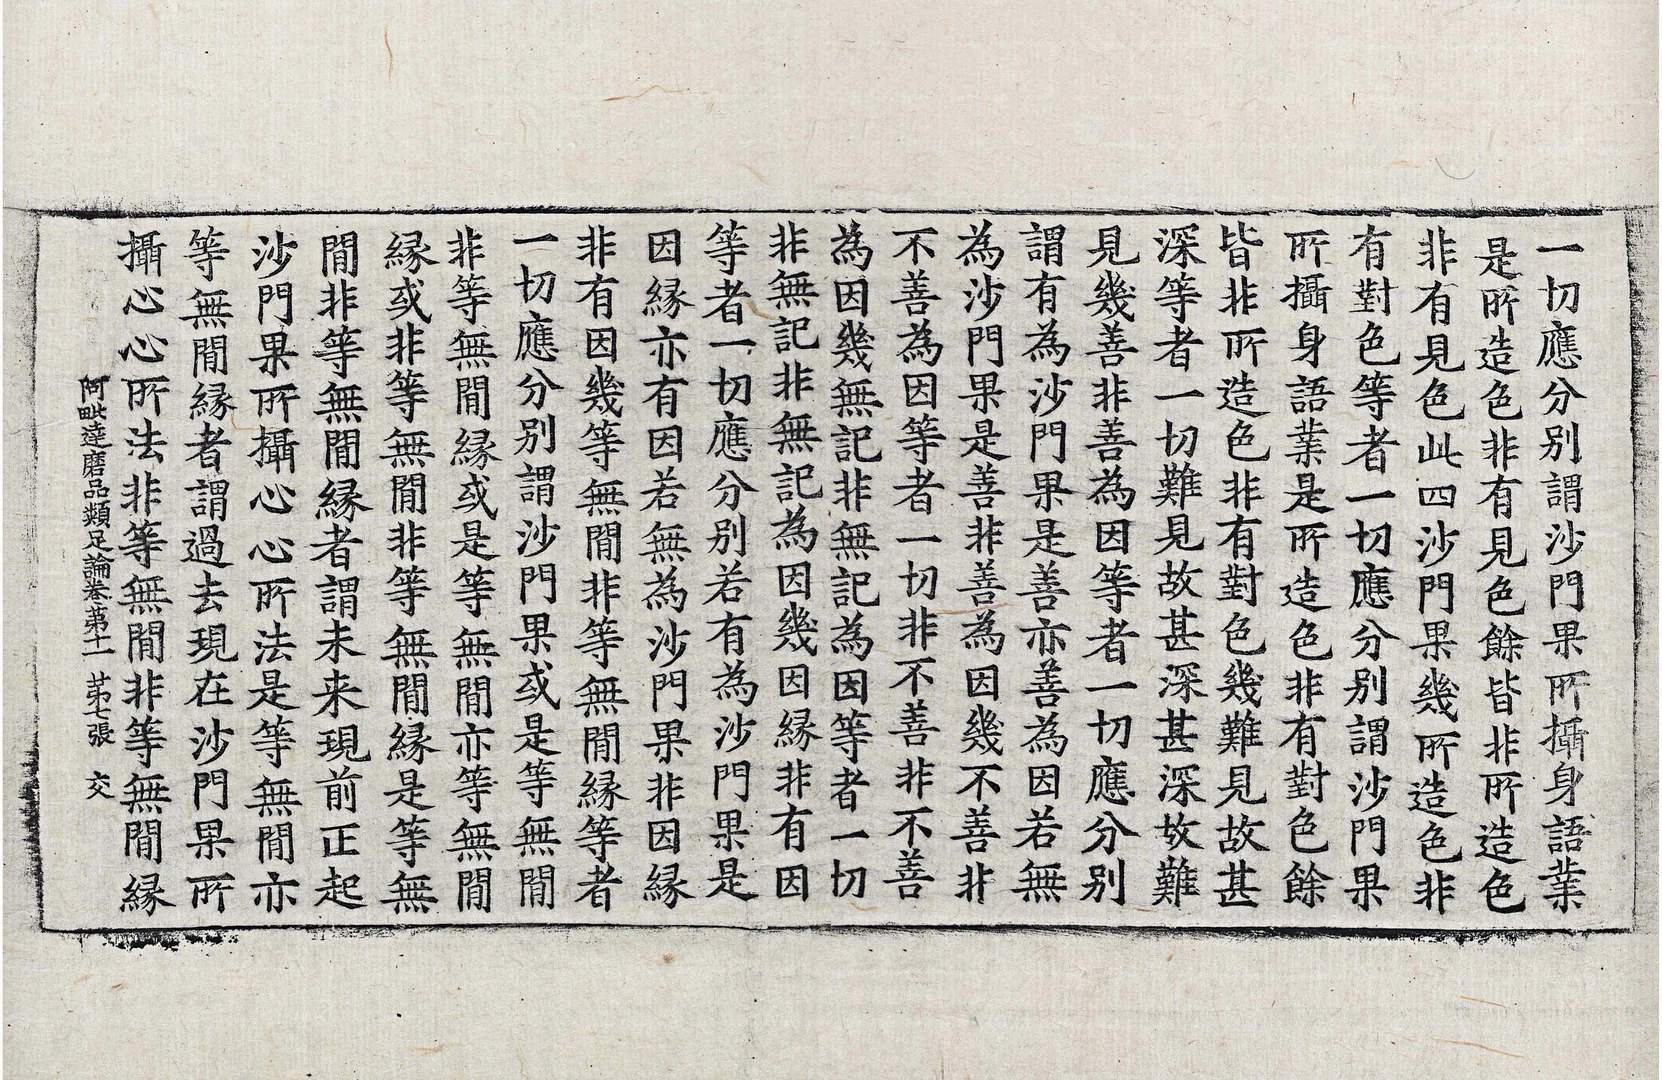 一切應分别謂沙門果所攝身語業
是所造色非有見色餘皆非所造色
非有見色此四沙門果幾所造色非
有對色等者一切應分别謂沙門果
所攝身語業是所造色非有對色餘
皆非所造色非有對色幾難見故甚
深等者一切難見故甚深甚深故難
見幾善非善為因等者一切應分别
謂有為沙門果是善亦善為因若無
為沙門果是善非善為因幾不善非
不善為因等者一切非不善非不善
為因幾無記非無記為因等者一切
非無記非無記為因幾因縁非有因
等者一切應分别若有為沙門果是
因縁亦有因若無為沙門果非因縁
非有因幾等無間非等無間縁等者
一切應分别謂沙門果或是等無間
非等無間縁或是等無間亦等無間
縁或非等無間非等無間縁是等無
間非等無間縁者謂未来現前正起
沙門果所攝心心所法是等無間亦
等無間縁者謂過去現在沙門果所
攝心心所法非等無間非等無間縁
阿毗達磨品類足論卷第十一 苐七張 交